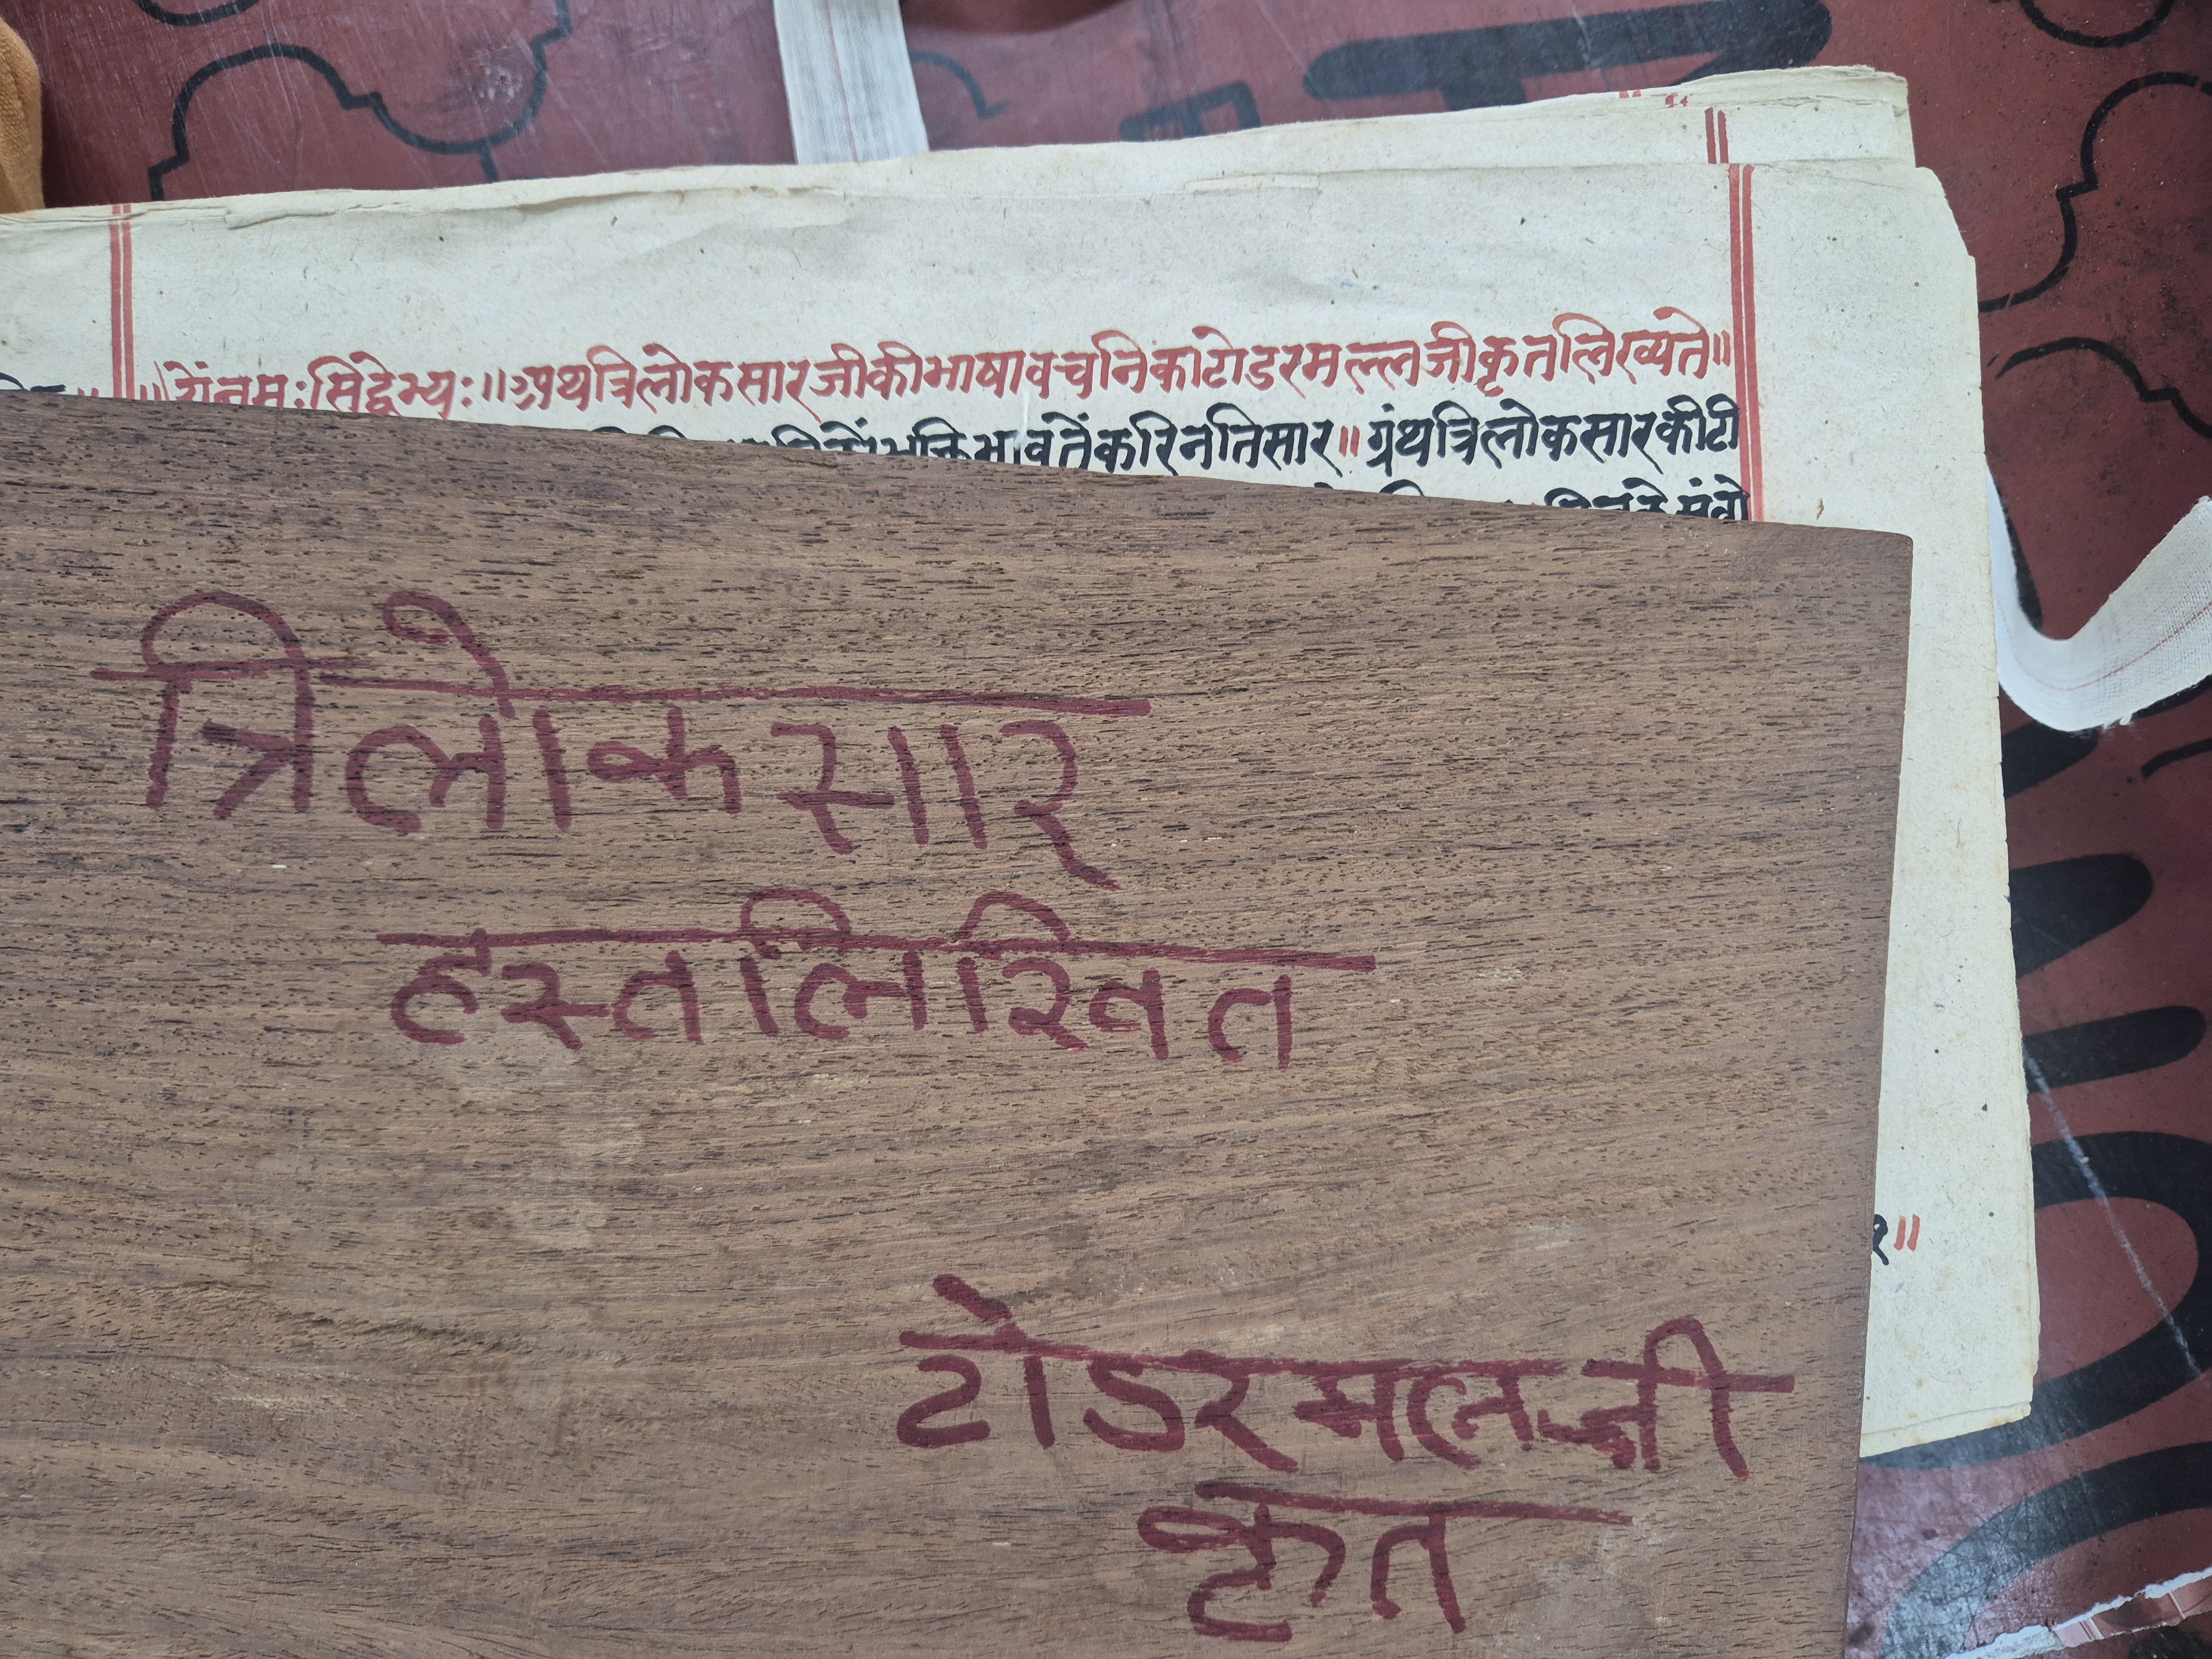 ॥ ओंनमःसिद्धेभ्यः॥ अथत्रिलोकसारजीकीभाषावचनिकाटोडरमल्लजीकृतलिख्यते॥
भक्तिभावतेंकरिनतिसार॥ ग्रंथत्रिलोकसारकीटी
त्रिलोकसार
हस्तलिखित
१॥
टोडरमलजी
कृत